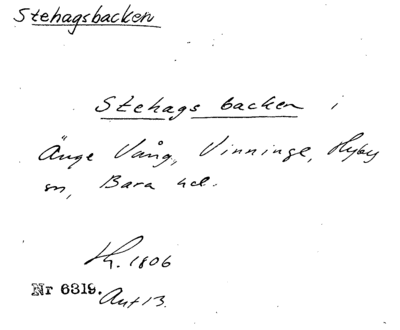 Stehagsbacken
Stehags backen i
Änge Vång, Vinninge, Hyby
sn, Bara hd.
Kh. 1806
Nr 6319. Akt 13.